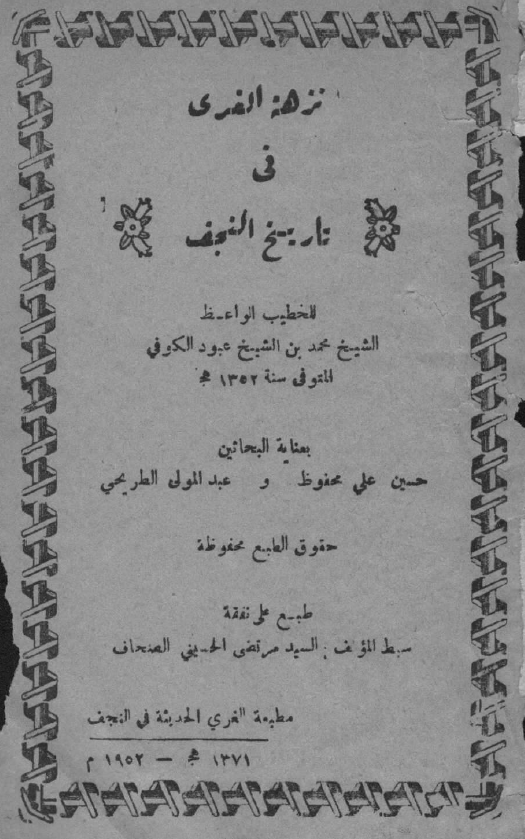 نزهة الغرى
في
تاريخ النجف
للخطيب الواعظ
الشيخ محمد بن الشيخ عبود الكوفي
المتوفى سنة ١٣٥٢ هج
بعناية البحاثين
حسين علي محفوظ و عبد المولى الطريحي
حقوق الطبع محفوظة
طبع على نفقة
سبط المؤلف : السيد مرتضى الحسيني الصحاف
مطبعة الغري الحديثة في النجف
١٣٧١ هج — ١٩٥٢ م